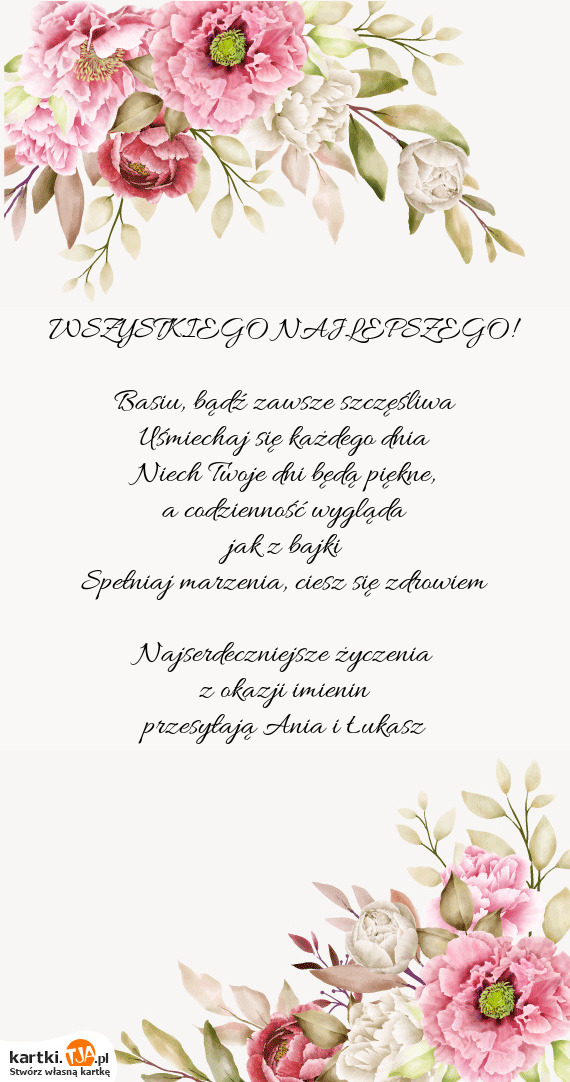 WSZYSTKIEGO NAJLEPSZEGO!
Basiu, bądź zawsze szczęśliwa
Uśmiechaj się każdego dnia
Niech Twoje dni będą piękne,
a codzienność wygląda
jak z bajki
Spełniaj marzenia, ciesz się zdrowiem
Najserdeczniejsze życzenia
z okazji imienin
przesyłają Ania i Łukasz
kartki.TJA.pl
Stwórz własną kartkę